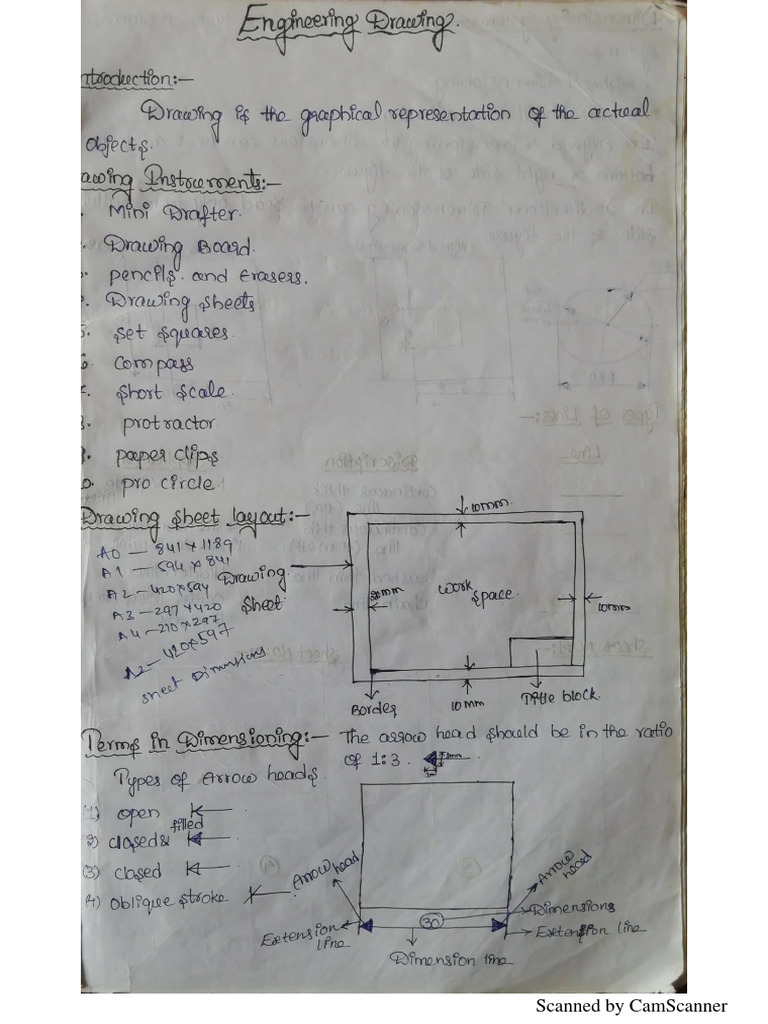 Engineering Drawing.
ntroduction:-
Drawing is the graphical representation of the actual
objects.
awing Instruments:-
Mini Drafter.
Drawing Board.
pencils and Erasers.
Drawing sheets
5. set squares.
6. compass
short scale.
protractor
paper clips
0. pro circle
Drawing sheet layout:-
A0 — 841 x 1189
A1 — 594 x 841
A2 — 420 x 594
A3 — 297 x 420
A4 — 210 x 297
A2 — 420 x 597
sheet Dimensions
Drawing
sheet
10mm.
20mm
work space.
10mm
Border
10mm
Title block.
Terms in Dimensioning:- The arrow head should be in the ratio
of 1:3.
Types of Arrow heads.
(1) open
(2) closed & filled
(3) closed
(4) oblique stroke
Arrow head
Arrow head
30
Dimensions
Extension line
Extension line
Dimension line
Scanned by CamScanner